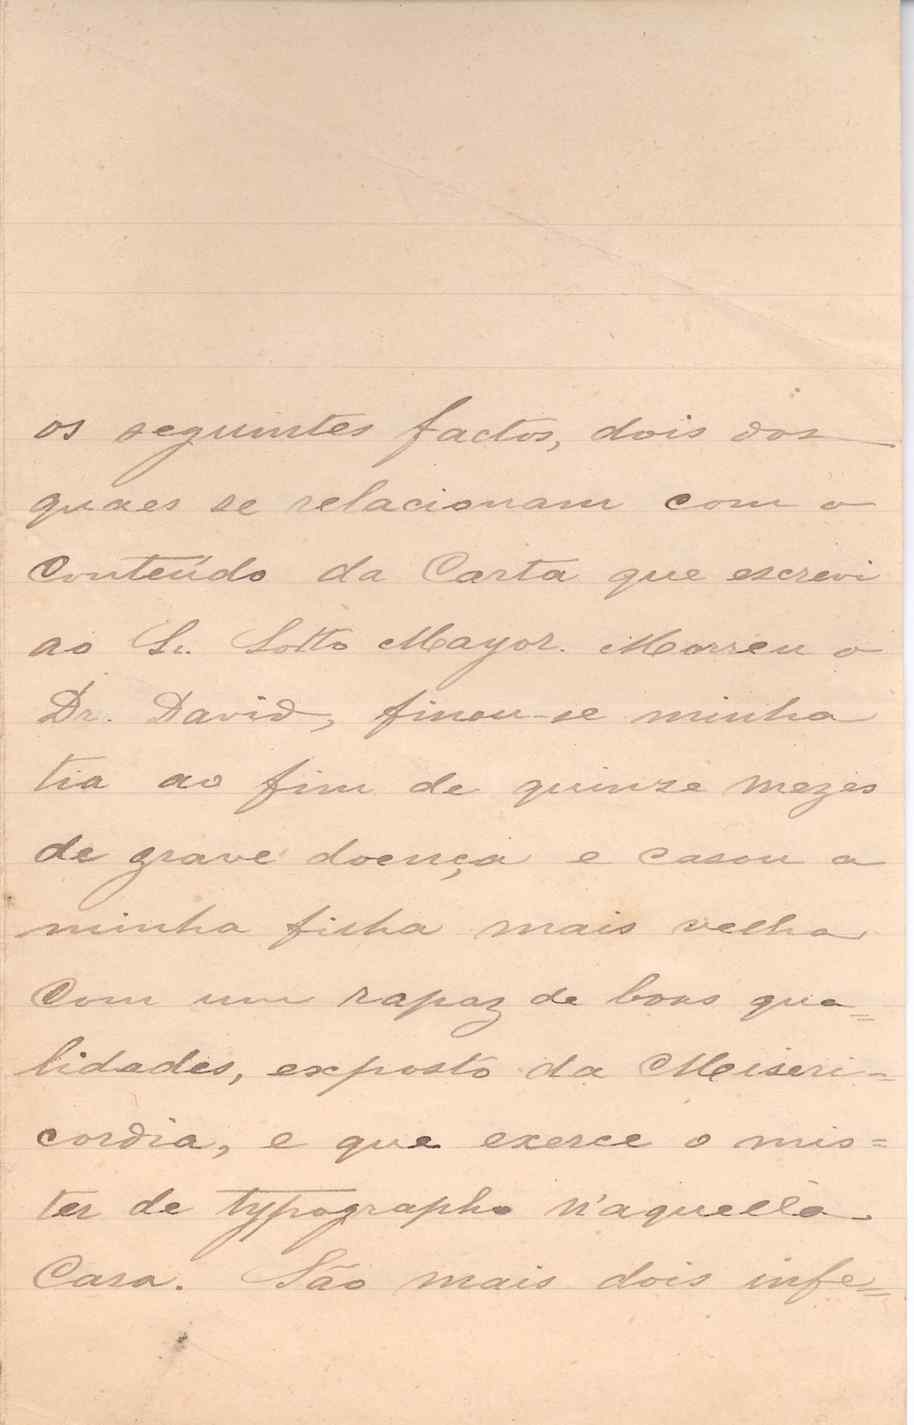 os seguintes factos, dois dos
quaes se relacionam com o
Conteúdo da Carta que escrevi
ao Sr. Sotto Mayor. Morreu o
Dr. David, finou-se minha
tia ao fim de quinze mezes
de grave doença e casou a
minha filha mais velha
Com um rapaz de boas qua=
lidades, exposto da Miseri=
cordia, e que exerce o mis=
ter de typographo n'aquella
Casa. São mais dois infe=